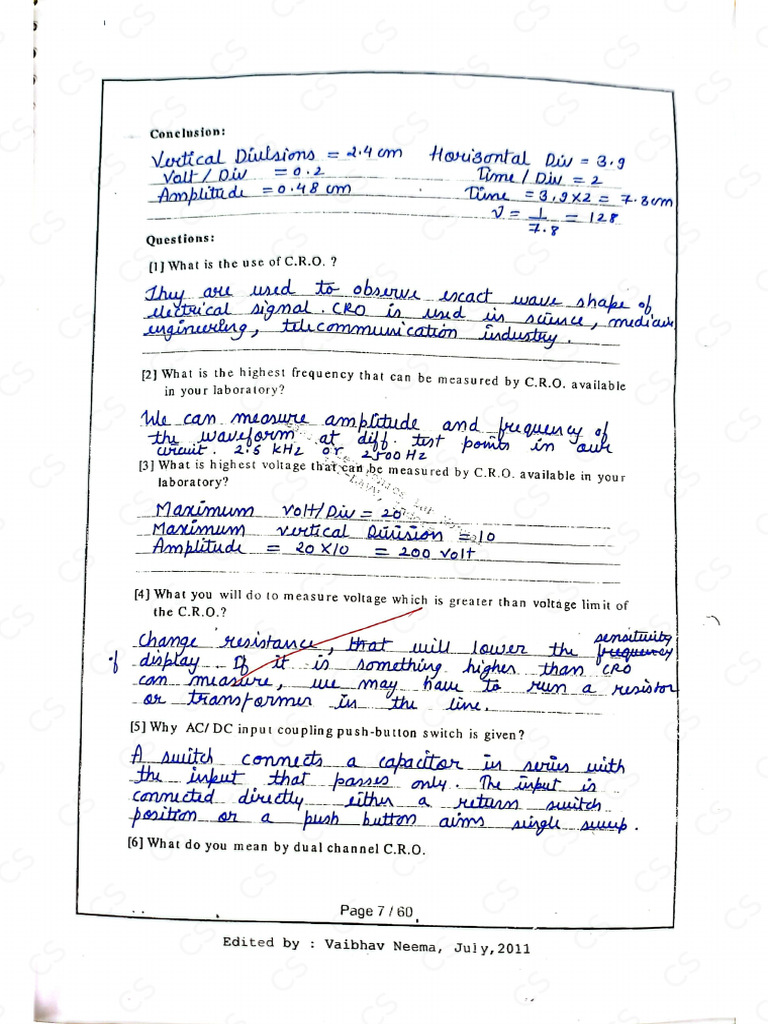 Conclusion:
Vertical Divisions = 2.4 cm Horizontal Div = 3.9
Volt / Div = 0.2 Time / Div = 2
Amplitude = 0.48 cm Time = 3.9x2 = 7.8 cm
ν = 1/7.8 = 128
Questions:
[1] What is the use of C.R.O. ?
They are used to observe excact wave shape of
electrical signal. CRO is used in science, medicine,
engineering, telecommunication industry.
[2] What is the highest frequency that can be measured by C.R.O. available
in your laboratory?
We can measure amplitude and frequency of
the waveform at diff. test points in our
circuit. 2.5 kHz or 2500 Hz
[3] What is highest voltage that can be measured by C.R.O. available in your
laboratory?
Maximum volt/Div = 20
Maximum vertical Division = 10
Amplitude = 20 x 10 = 200 volt
[4] What you will do to measure voltage which is greater than voltage limit of
the C.R.O.?
Change resistance, that will lower the sensitivity frequency
of display. If it is something higher than CRO
can measure, we may have to run a resistor
or transformer in the line.
[5] Why AC/ DC input coupling push-button switch is given?
A switch connects a capacitor in series with
the input that passes only. The input is
connected directly either a return switch
position or a push button aims single sweep.
[6] What do you mean by dual channel C.R.O.
Page 7 / 60
Edited by : Vaibhav Neema, July,2011
CS